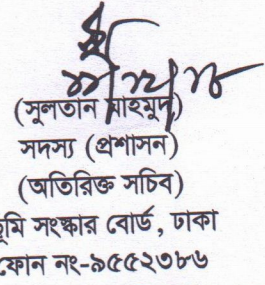 (সুলতান মাহমুদ)
সদস্য (প্রশাসন)
(অতিরিক্ত সচিব)
ভূমি সংস্কার বোর্ড, ঢাকা
ফোন নং-৯৫৫২৩৮৬